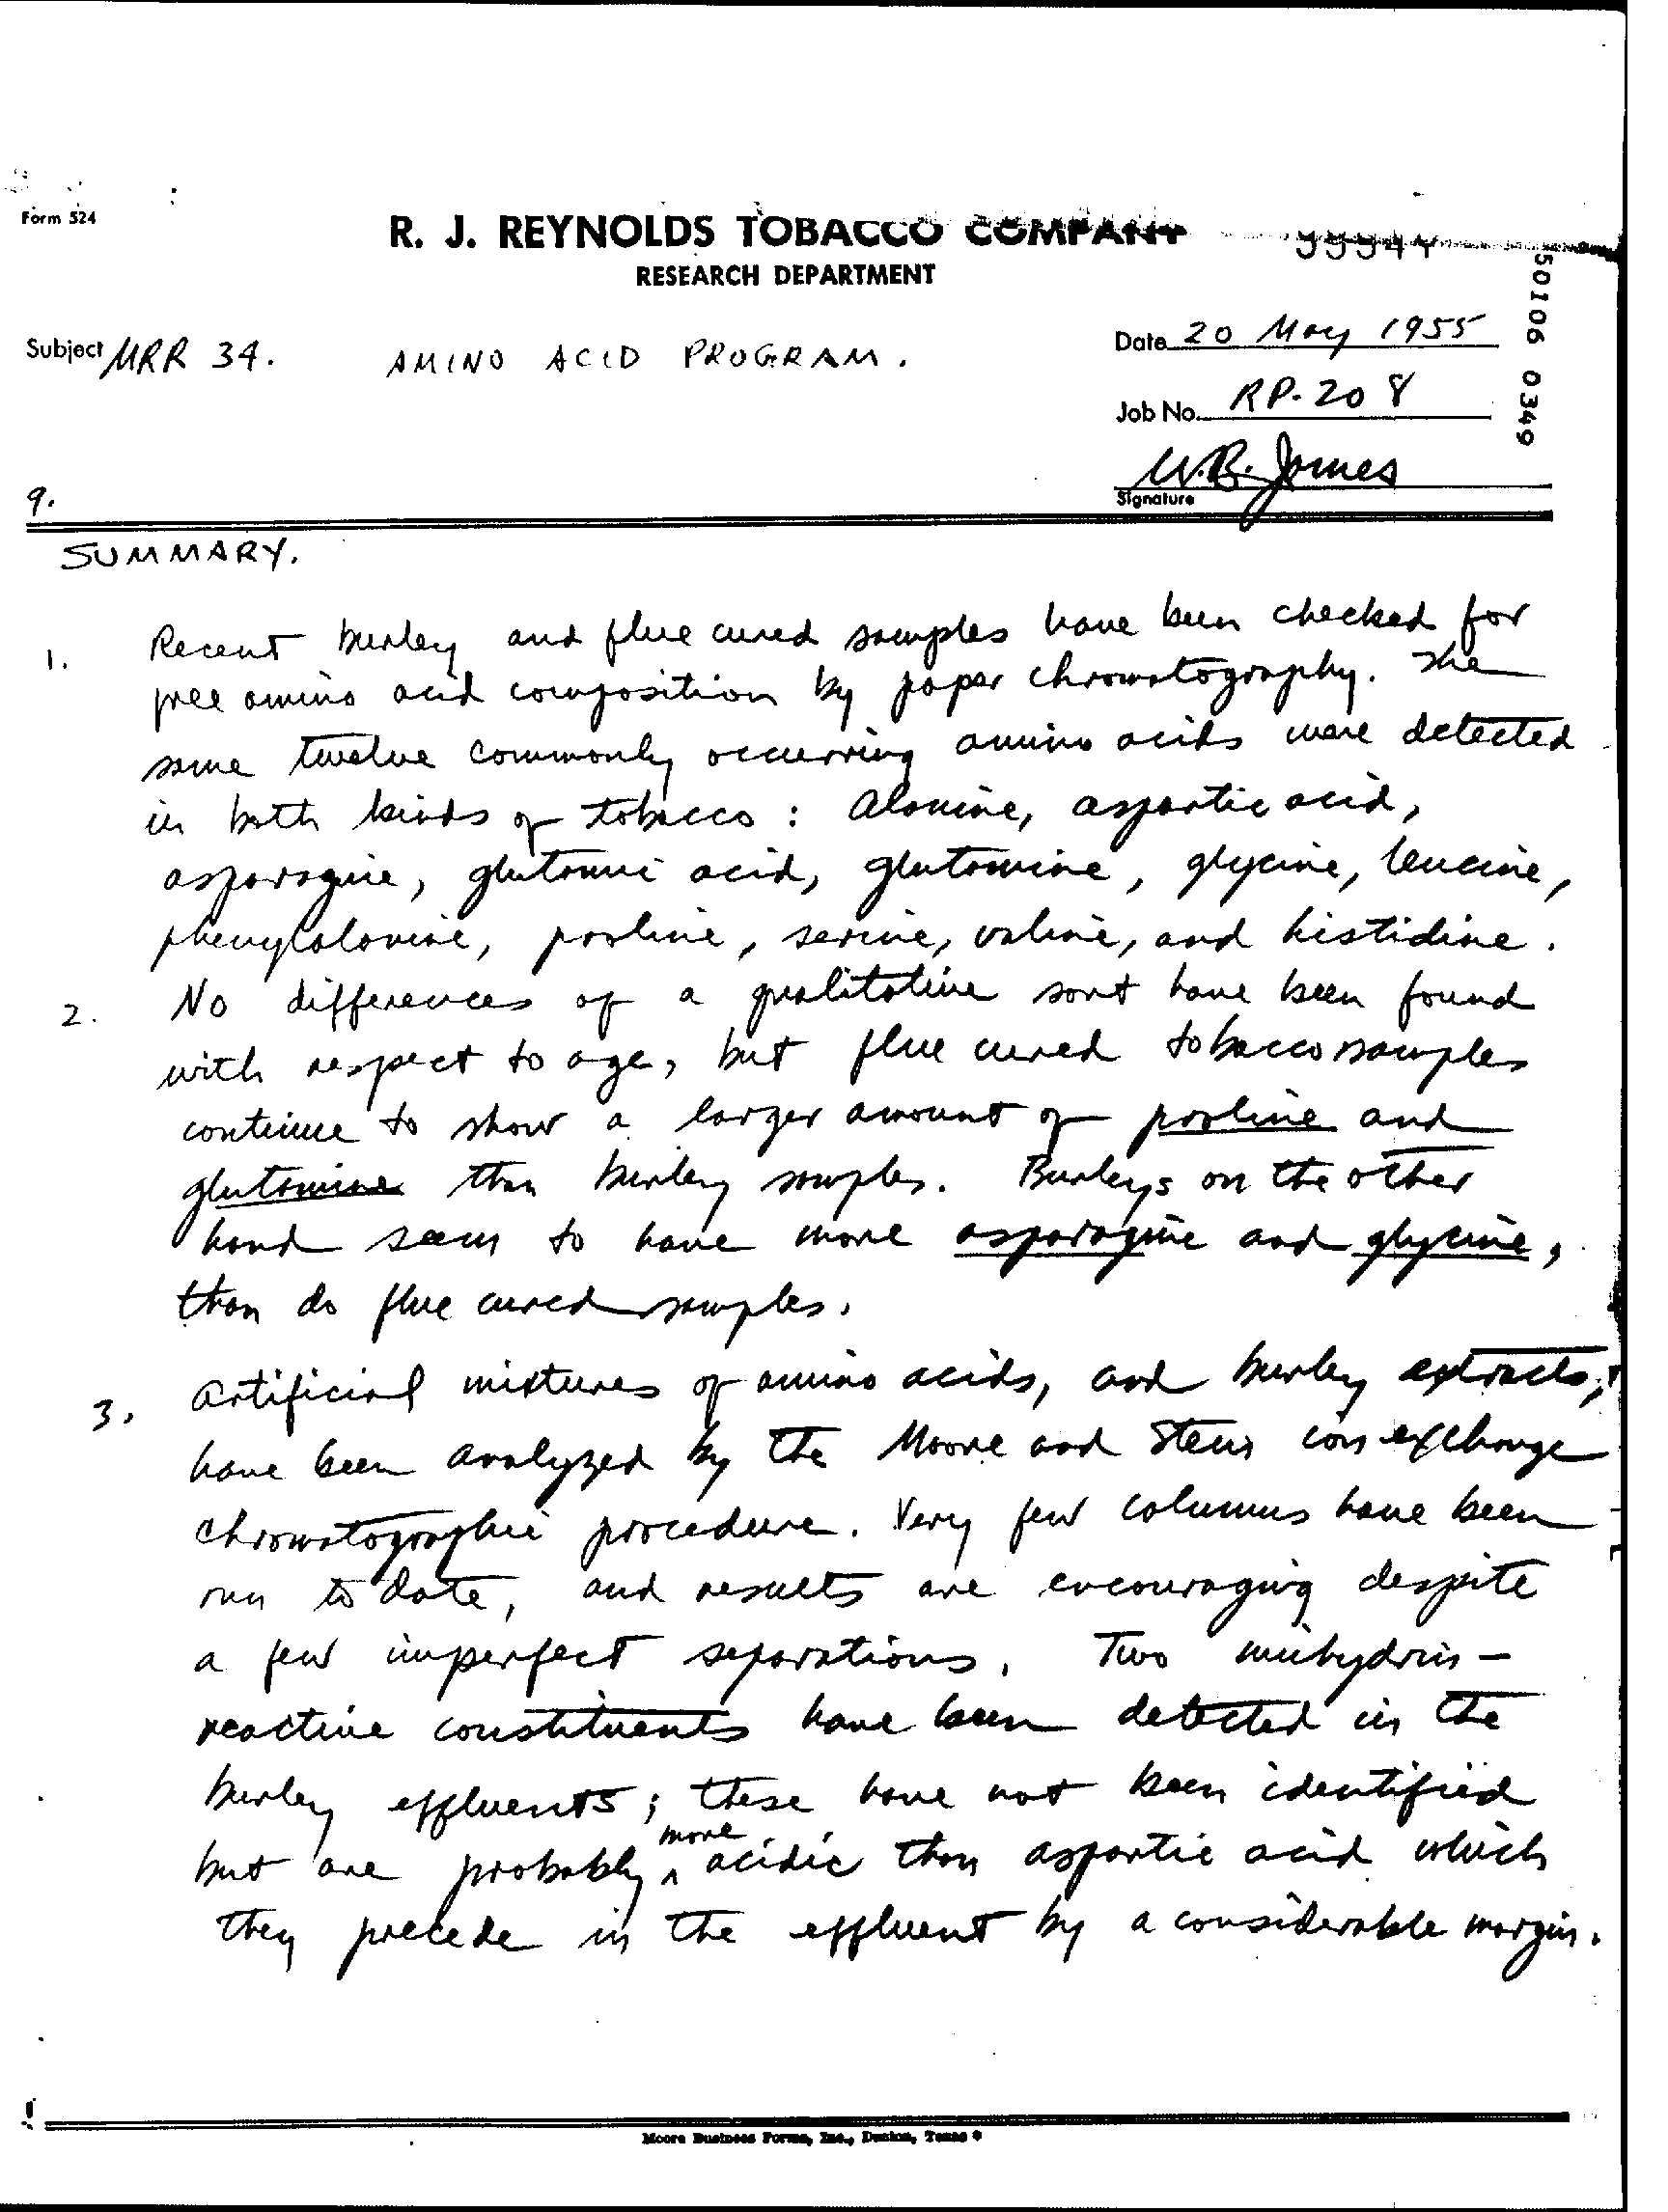 Form 524
R. J. REYNOLDS TOBACCO COMPANY
RESEARCH DEPARTMENT
50106 0349
Subject MRR 34. AMINO ACID PROGRAM.
Date 20 May 1955
Job No. RP-208
W.B. James
Signature
9.
SUMMARY.
1. Recent burley and flue cured samples have been checked for
free amino acid composition by paper chromatography. The
same twelve commonly occurring amino acids were detected
in both kinds of tobacco: Alanine, aspartic acid,
asparagine, glutamic acid, glutamine, glycine, leucine,
phenylalanine, proline, serine, valine, and histidine.
2. No differences of a qualitative sort have been found
with respect to age, but flue cured tobacco samples
continue to show a larger amount of proline and
glutamine than burley samples. Burleys on the other
hand seem to have more asparagine and glycine,
than do flue cured samples.
3. Artificial mixtures of amino acids, and burley extracts,
have been analyzed by the Moore and Stein ion exchange
chromatographic procedure. Very few columns have been
run to date, and results are encouraging despite
a few imperfect separations. Two ninhydrin-
reactive constituents have been detected in the
burley effluents; these have not been identified
but are probably more acidic than aspartic acid which
they precede in the effluent by a considerable margin.
Moore Business Forms, Inc., Denton, Texas